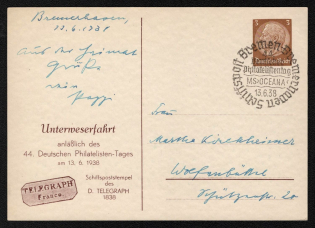 Bremerhaven,
13.6.1938
Aus der Heimat
Grüße
Dein
Happi
Unterweserfahrt
anläßlich des
44. Deutschen Philatelisten-Tages
am 13. 6. 1938
Schiffspoststempel
des
D. TELEGRAPH
1838
TELEGRAPH
Franco.
3
Deutsches Reich
Schiffspost Bremen-Bremerhaven
Philatelistentag
MS·OCEANA
13.6.38
Frau
Martha Kirchheimer
Wolfenbüttel